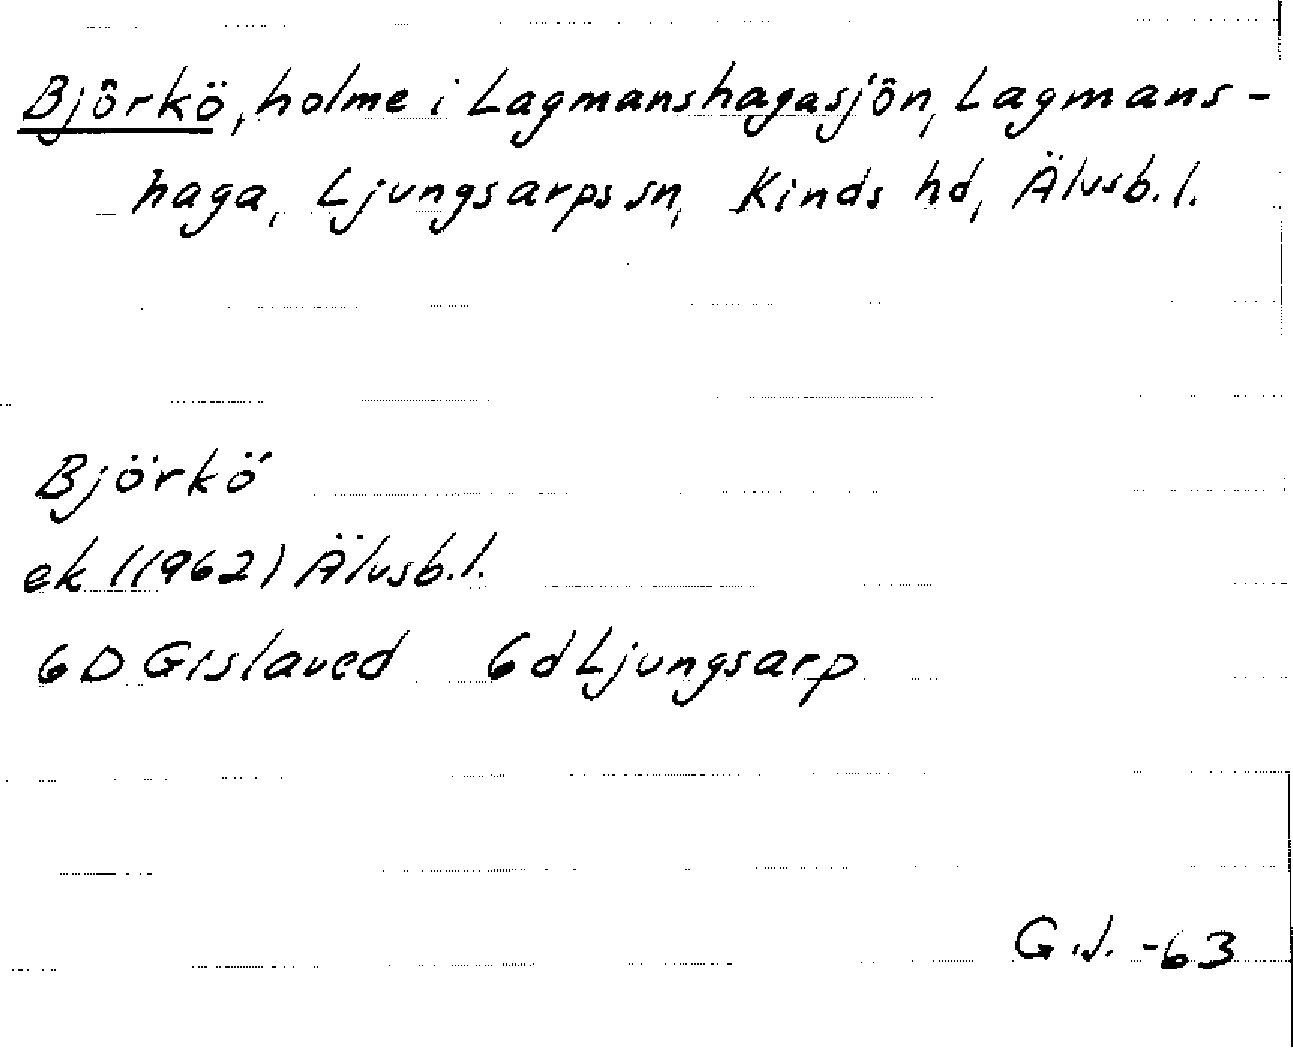 Björkö, holme i Lagmanshagasjön, Lagmans-
haga, Ljungsarps sn, Kinds hd, Älvsb.l.
Björkö
ek (1962) Älvsb.l.
6D Gislaved 6d Ljungsarp
G.J. -63